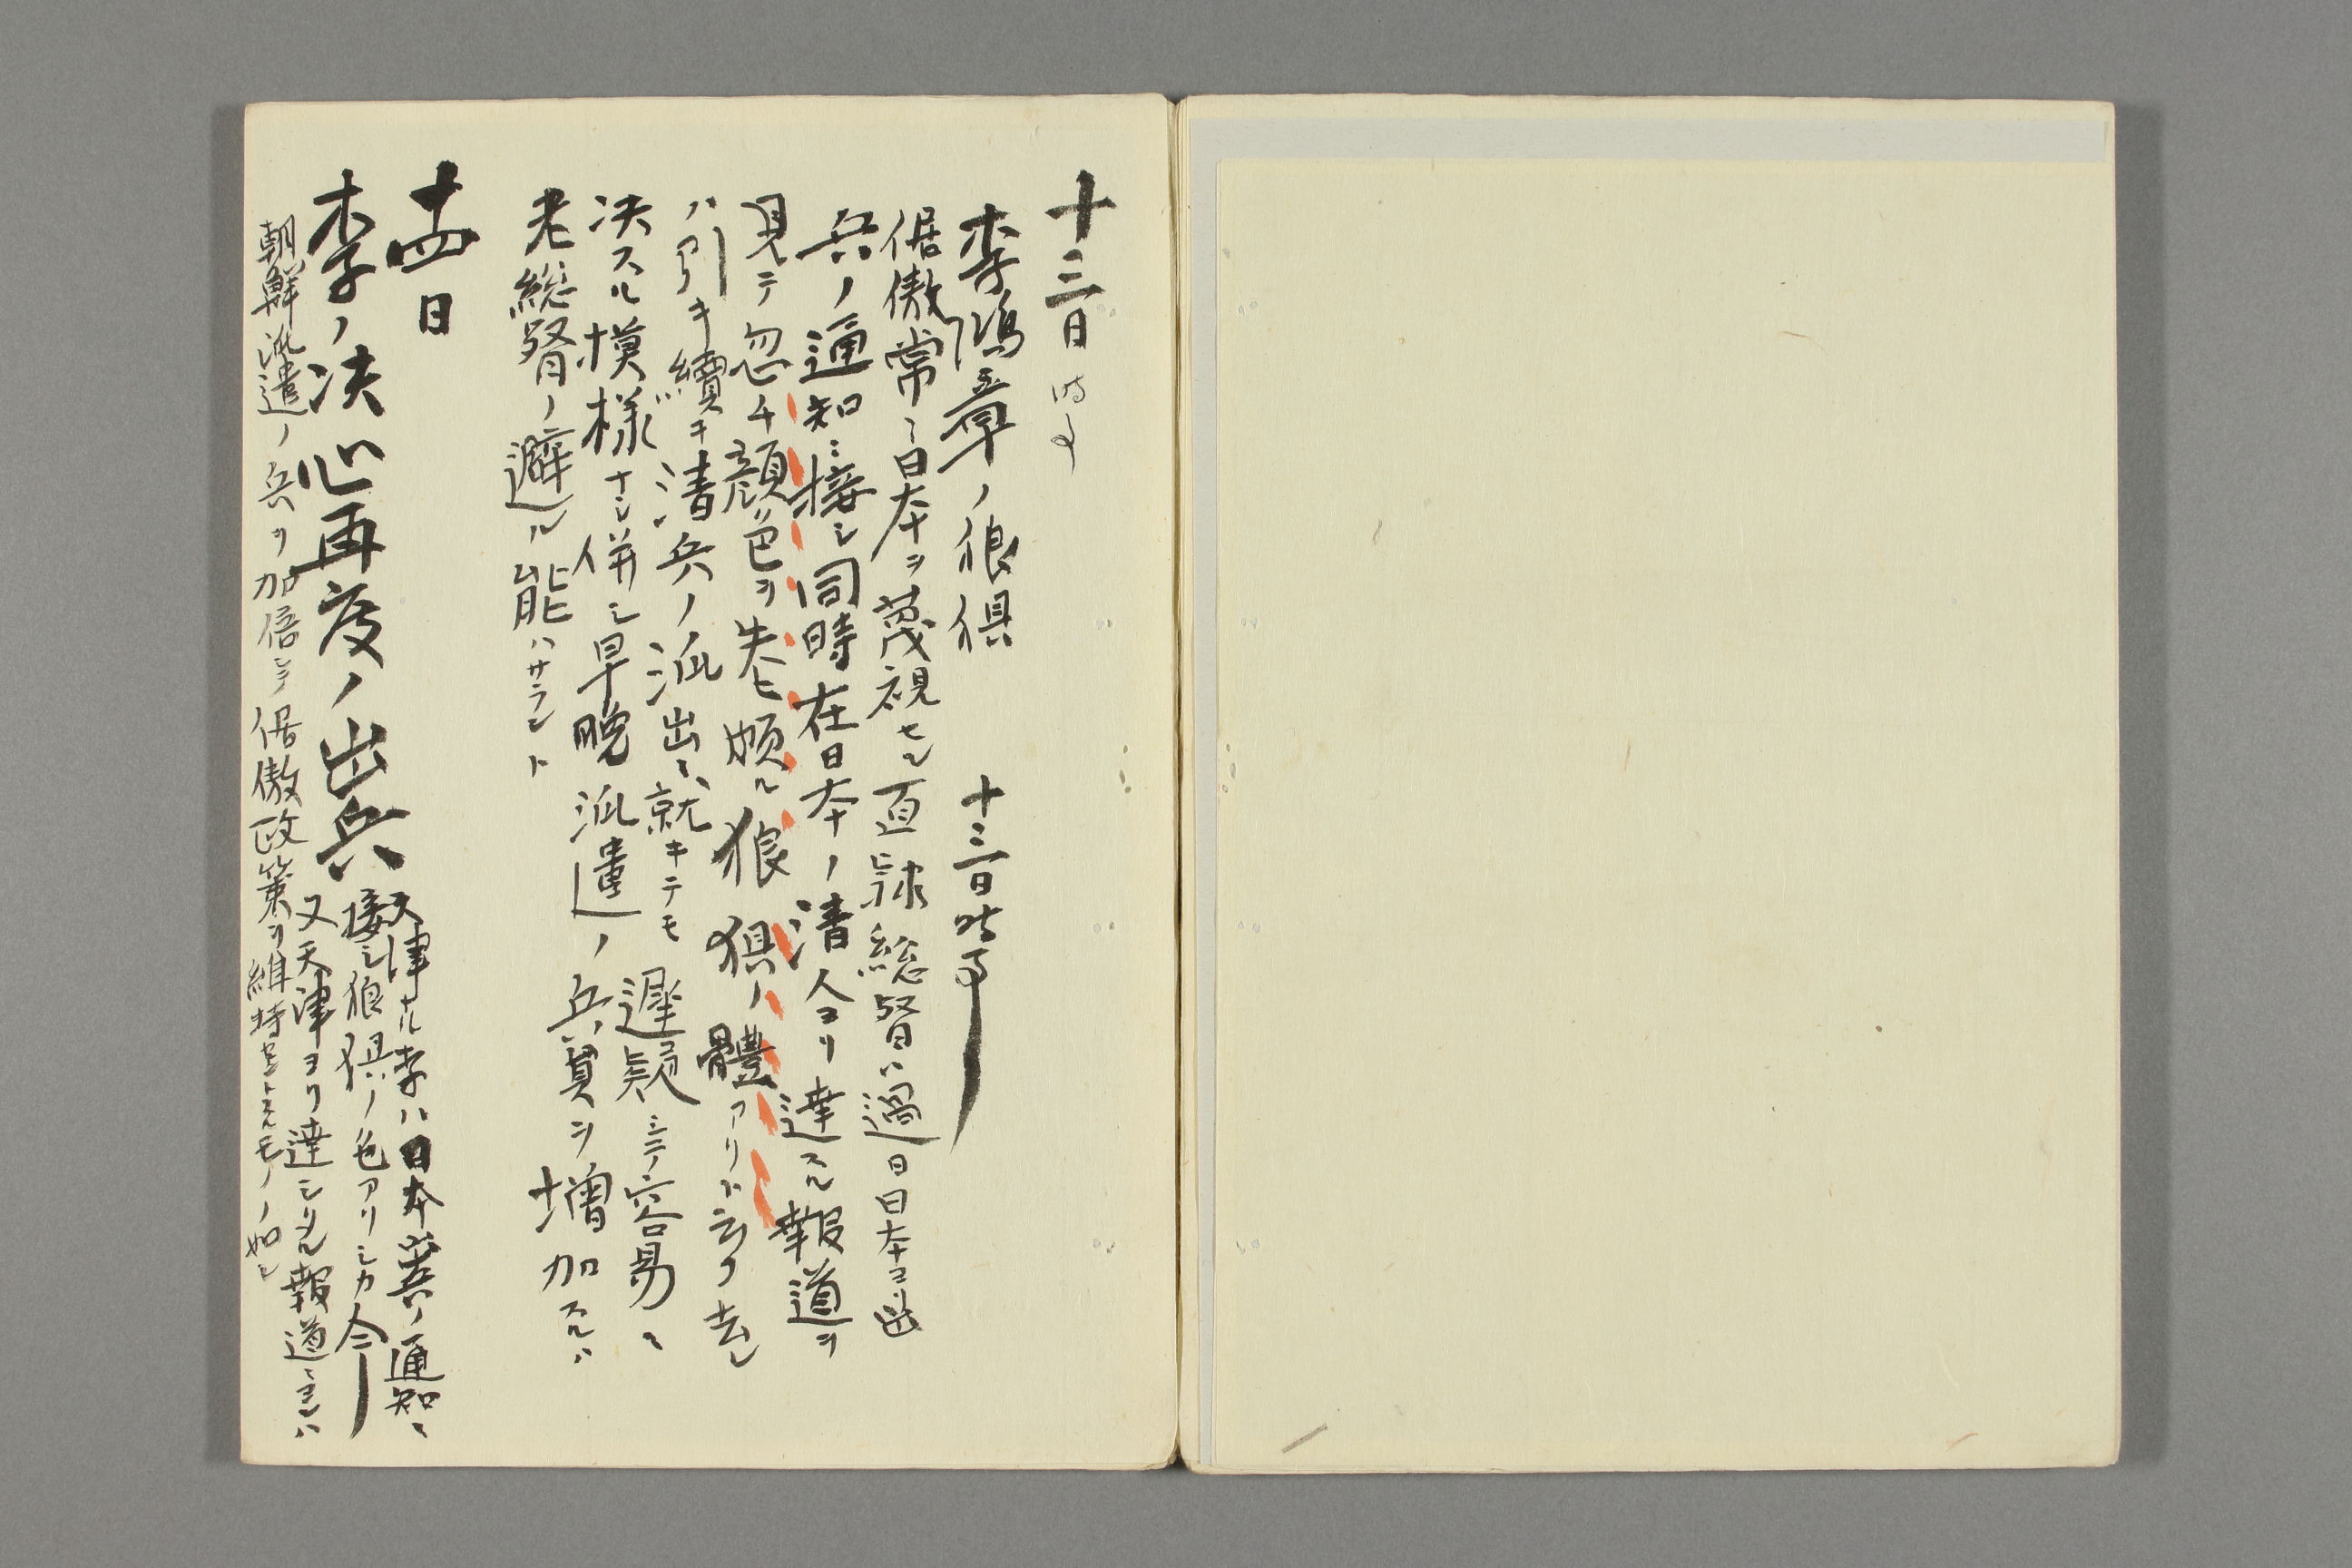 十三日 時事
李鴻章ノ狼狽 十三日時事
倨傲常ニ日本ヲ蔑視セル直隷総督ハ過日日本ヨリ出
兵ノ通知ニ接シ同時在日本ノ清人ヨリ達スル報道ヲ
見テ忽チ顔色ヲ失ヒ頗ル狼狽ノ體アリト云フ去レ
ハ引キ續キ清兵ノ派出ニ就キテモ遅疑シテ容易ニ
决スル模様ナシ併シ早晩派遣ノ兵員ヲ増加スルハ
老総督ノ避ル能ハサラント
十四日
李ノ决心再度ノ出兵
天津ナル李ハ日本出兵ノ通知ニ
接シ狼狽ノ色アリシカ今
又天津ヨリ達シタル報道ニヨレハ
朝鮮派遣ノ兵ヲ加倍シテ倨傲政策ヲ維持セントスルモノノ如シ